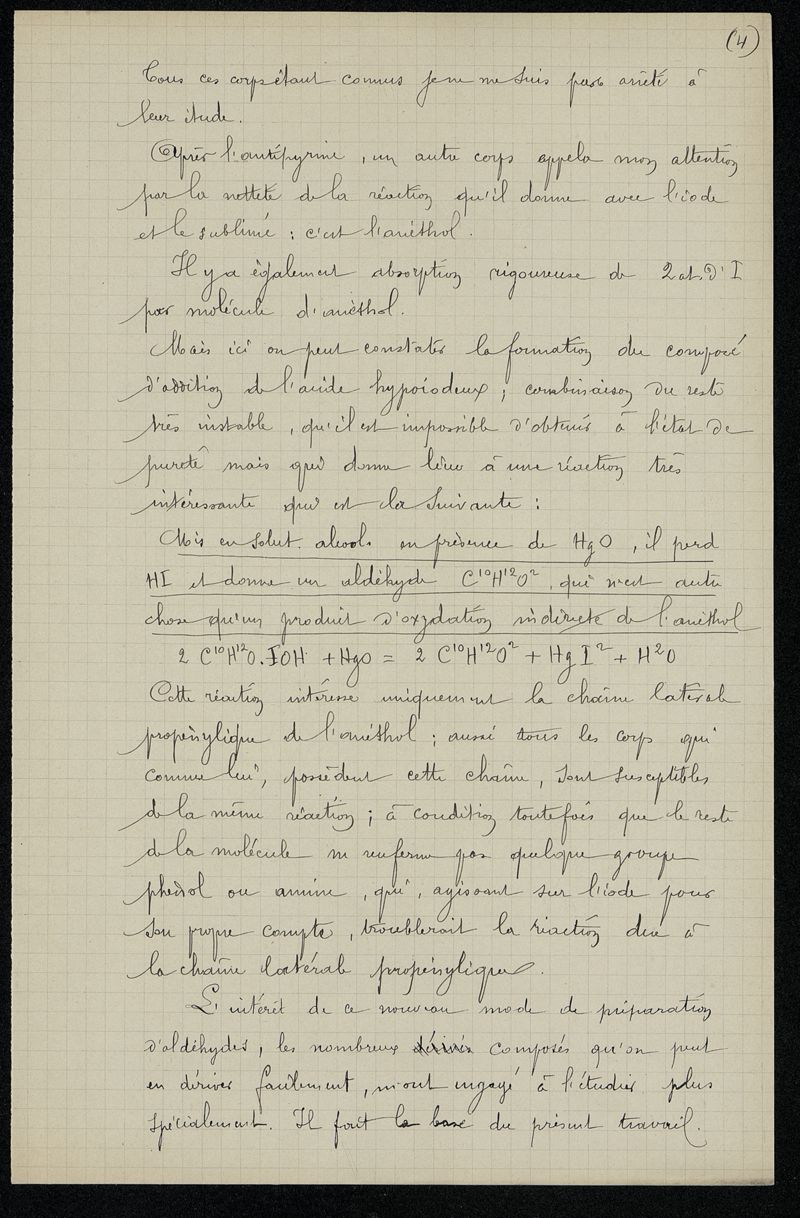 (4)
Tous ces corps étant connus je ne me suis pas arrêté à
leur étude.
Après l'antipyrine, un autre corps appela mon attention
par la netteté de la réaction qu'il donne avec l'iode
et le sublimé : c'est l'anéthol.
Il y a également absorption rigoureuse de 2 at. d'I
par molécule d'anéthol.
Mais ici on peut constater la formation du composé
d'addition de l'acide hypoiodeux ; combinaison du reste
très instable, qu'il est impossible d'obtenir à l'état de
pureté mais qui donne lieu à une réaction très
intéressante qui est la suivante :
Mis en solut. alcool. en présence de HgO, il perd
HI et donne un aldéhyde C¹⁰H¹²O², qui n'est autre
chose qu'un produit d'oxydation indirecte de l'anéthol
2 C¹⁰H¹²O.IOH + HgO = 2 C¹⁰H¹²O² + HgI² + H²O
Cette réaction intéresse uniquement la chaîne latérale
propénylique de l'anéthol ; aussi tous les corps qui
comme lui, possèdent cette chaîne, sont susceptibles
de la même réaction ; à condition toutefois que le reste
de la molécule ne renferme pas quelque groupe
phénol ou amine, qui, agissant sur l'iode pour
son propre compte, troublerait la réaction due à
la chaîne latérale propénylique.
L'intérêt de ce nouveau mode de préparation
d'aldéhydes, les nombreux dérivés composés qu'on peut
en dériver facilement, m'ont engagé à l'étudier plus
spécialement. Il fait la base du présent travail.